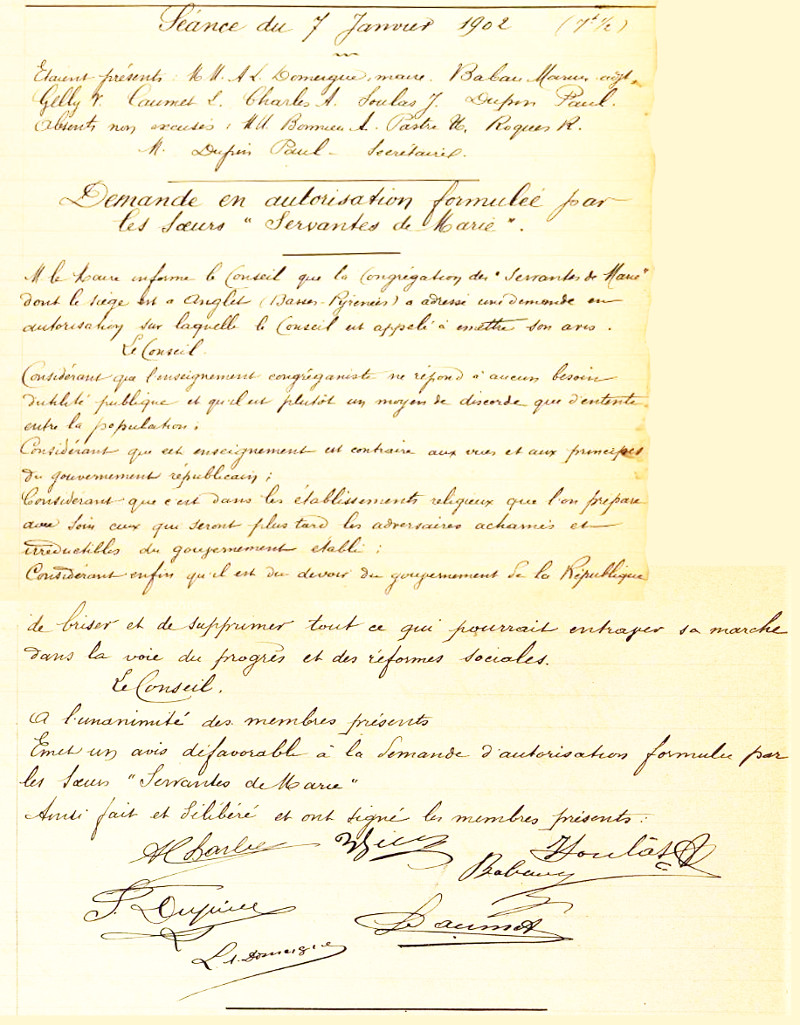 Séance du 7 Janvier 1902 (7h ½)
Etaient présents : MM. A L. Domergue, maire. Babau Marius, adjt,
Gelly V. Caumet L. Charles A. Soulas J. Dupin Paul.
Absents non excusés : MM. Bonnieu A. Pastre H, Roques R.
M. Dupin Paul - Secrétaire.
Demande en autorisation formulée par
les Sœurs "Servantes de Marie".
M le Maire informe le Conseil que la Congrégation des "Servantes de Marie"
dont le siège est à Anglet (Basses-Pyrénées) a adressé une demande en
autorisation sur laquelle le Conseil est appelé à émettre son avis.
Le Conseil.
Considérant que l'enseignement congréganiste ne répond à aucun besoin
d'utilité publique et qu'il est plutôt un moyen de discorde que d'entente
entre la population ;
Considérant que cet enseignement est contraire aux vues et aux principes
du gouvernement républicain ;
Considérant que c'est dans les établissements religieux que l'on prépare
avec soin ceux qui seront plus tard les adversaires acharnés et
irréductibles du gouvernement établi ;
Considérant enfin qu'il est du devoir du gouvernement de la République
de briser et de supprimer tout ce qui pourrait entraver sa marche
dans la voie du progrès et des réformes sociales.
Le Conseil.
A l'unanimité des membres présents
Emet un avis défavorable à la demande d'autorisation formulée par
les Sœurs "Servantes de Marie"
Ainsi fait et délibéré et ont signé les membres présents :
A Charles
Babau
J Soulas
P. Dupin
L. Caumet
L. A. Domergue